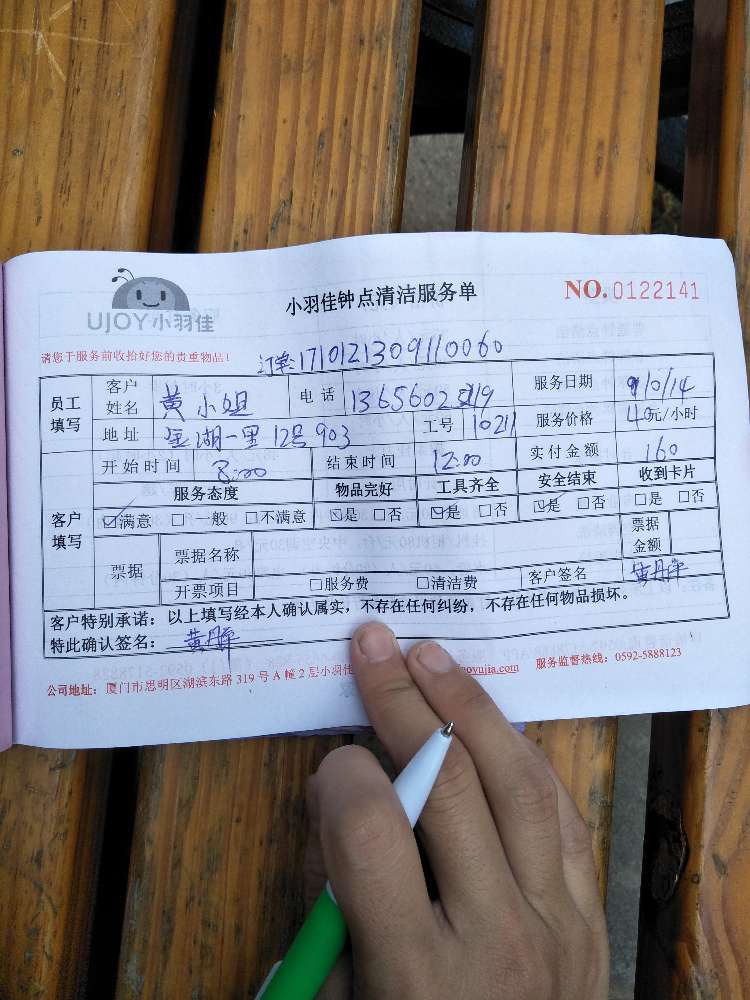 UJOY小羽佳
小羽佳钟点清洁服务单
NO.0122141
请您于服务前收拾好您的贵重物品!
订单:1710121309110060
员工填写 客户姓名 黄小姐 电话 服务日期 10/14
地址 金湖一里12号903 工号 10211 服务价格 40元/小时
开始时间 8:00 结束时间 12:00 实付金额 160
客户填写 服务态度 物品完好 工具齐全 安全结束 收到卡片
☑满意 □一般 □不满意 ☑是 □否 ☑是 □否 ☑是 □否 □是 □否
票据 票据名称 票据金额
开票项目 □服务费 □清洁费 客户签名 黄丹萍
客户特别承诺:以上填写经本人确认属实,不存在任何纠纷,不存在任何物品损坏。
特此确认签名: 黄丹萍
公司地址:厦门市思明区湖滨东路319号A幢2层小羽佳 oyujia.com 服务监督热线:0592-5888123